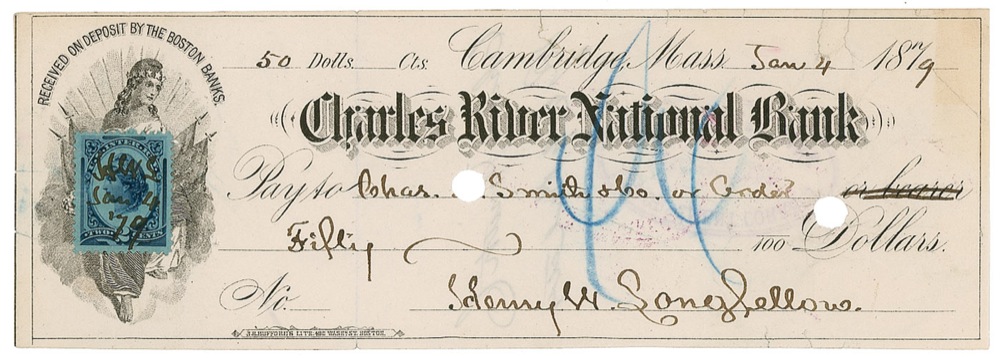 RECEIVED ON DEPOSIT BY THE BOSTON BANKS.
50 Dolls. Cts. Cambridge, Mass. Jan 4 1879
Charles River National Bank
Pay to Chas. Smith & Co. or Order or bearer
Fifty 100 Dollars.
No. Henry W. Longfellow.
Jan 4
'79
TWO CENTS
J.H. BUFFORD'S LITH. 490 WASH'N ST. BOSTON.